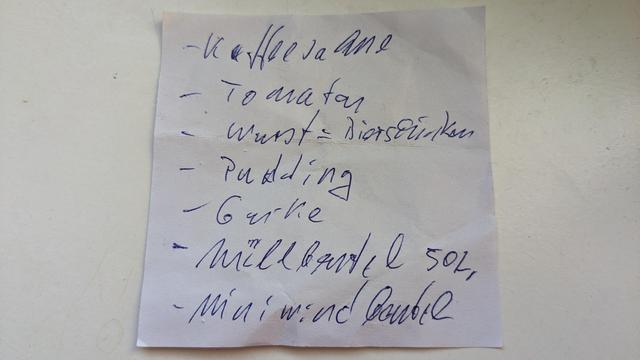 - Kaffeesahne
- Tomaten
- Wurst = Bierschinken
- Pudding
- Gurke
- Müllbeutel 50L,
- Miniwindbeutel